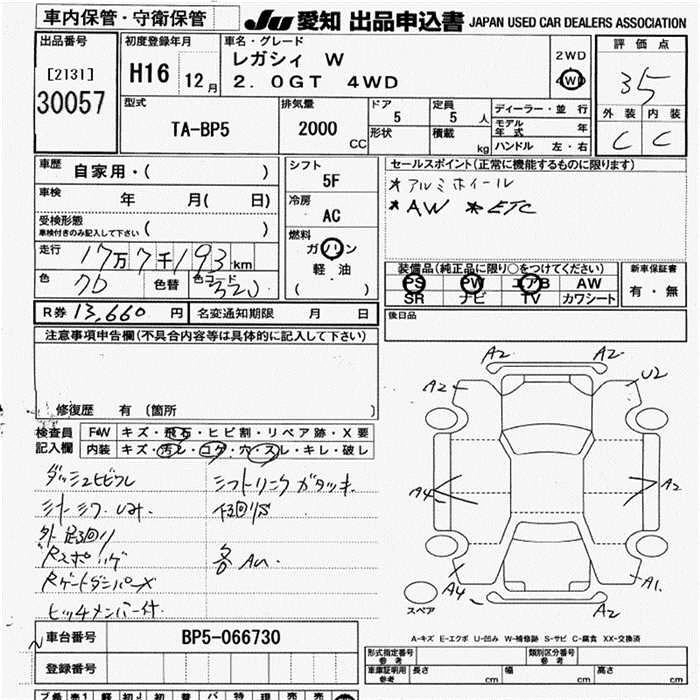 車内保管・守衛保管
JU 愛知 出品申込書 JAPAN USED CAR DEALERS ASSOCIATION
出品番号
[2131]
30057
初度登録年月
H16 12月
車名・グレード
レガシィ W
2．0GT 4WD
2WD
4WD
評価点
3.5
外装 内装
C C
型式
TA-BP5
排気量
2000 CC
ドア
5
形状
定員
5人
積載 kg
ディーラー・並行
モデル年式 年
ハンドル 左・右
車歴 自家用・( )
車検 年 月( 日)
受検形態
車検付きのみ記入して下さい ( )
走行 17万7千193km
色
色替
色コード 320
シフト
5F
冷房
AC
燃料
ガソリン
軽油
( )
セールスポイント(正常に機能するものに限ります)
*アルミホイール
*AW *ETC
装備品(純正品に限り○をつけてください)
PS PW エアB AW
SR ナビ TV カワシート
新車保証書
有・無
R券 13,660円 名変通知期限 月 日
後日品
注意事項申告欄(不具合内容等は具体的に記入して下さい)
修復歴 有 〔箇所 〕
検査員記入欄
F・W キズ・飛石・ヒビ割・リペア跡・X要
内装 キズ・汚レ・コゲ・穴・スレ・キレ・破レ
シフトリンクガタツキ
Rゲートダンパー×
ヒッチメンバー付
A2 A2
A2 U2
A4 A2
A4 A1
A2
スペア
A-キズ E-エクボ U-凹み W-補修跡 S-サビ C-腐食 XX-交換済
車台番号 BP5-066730
登録番号
形式指定番号 参考
類別区分番号 参考
車庫証明用 参考 長さ cm 幅 cm 高さ cm